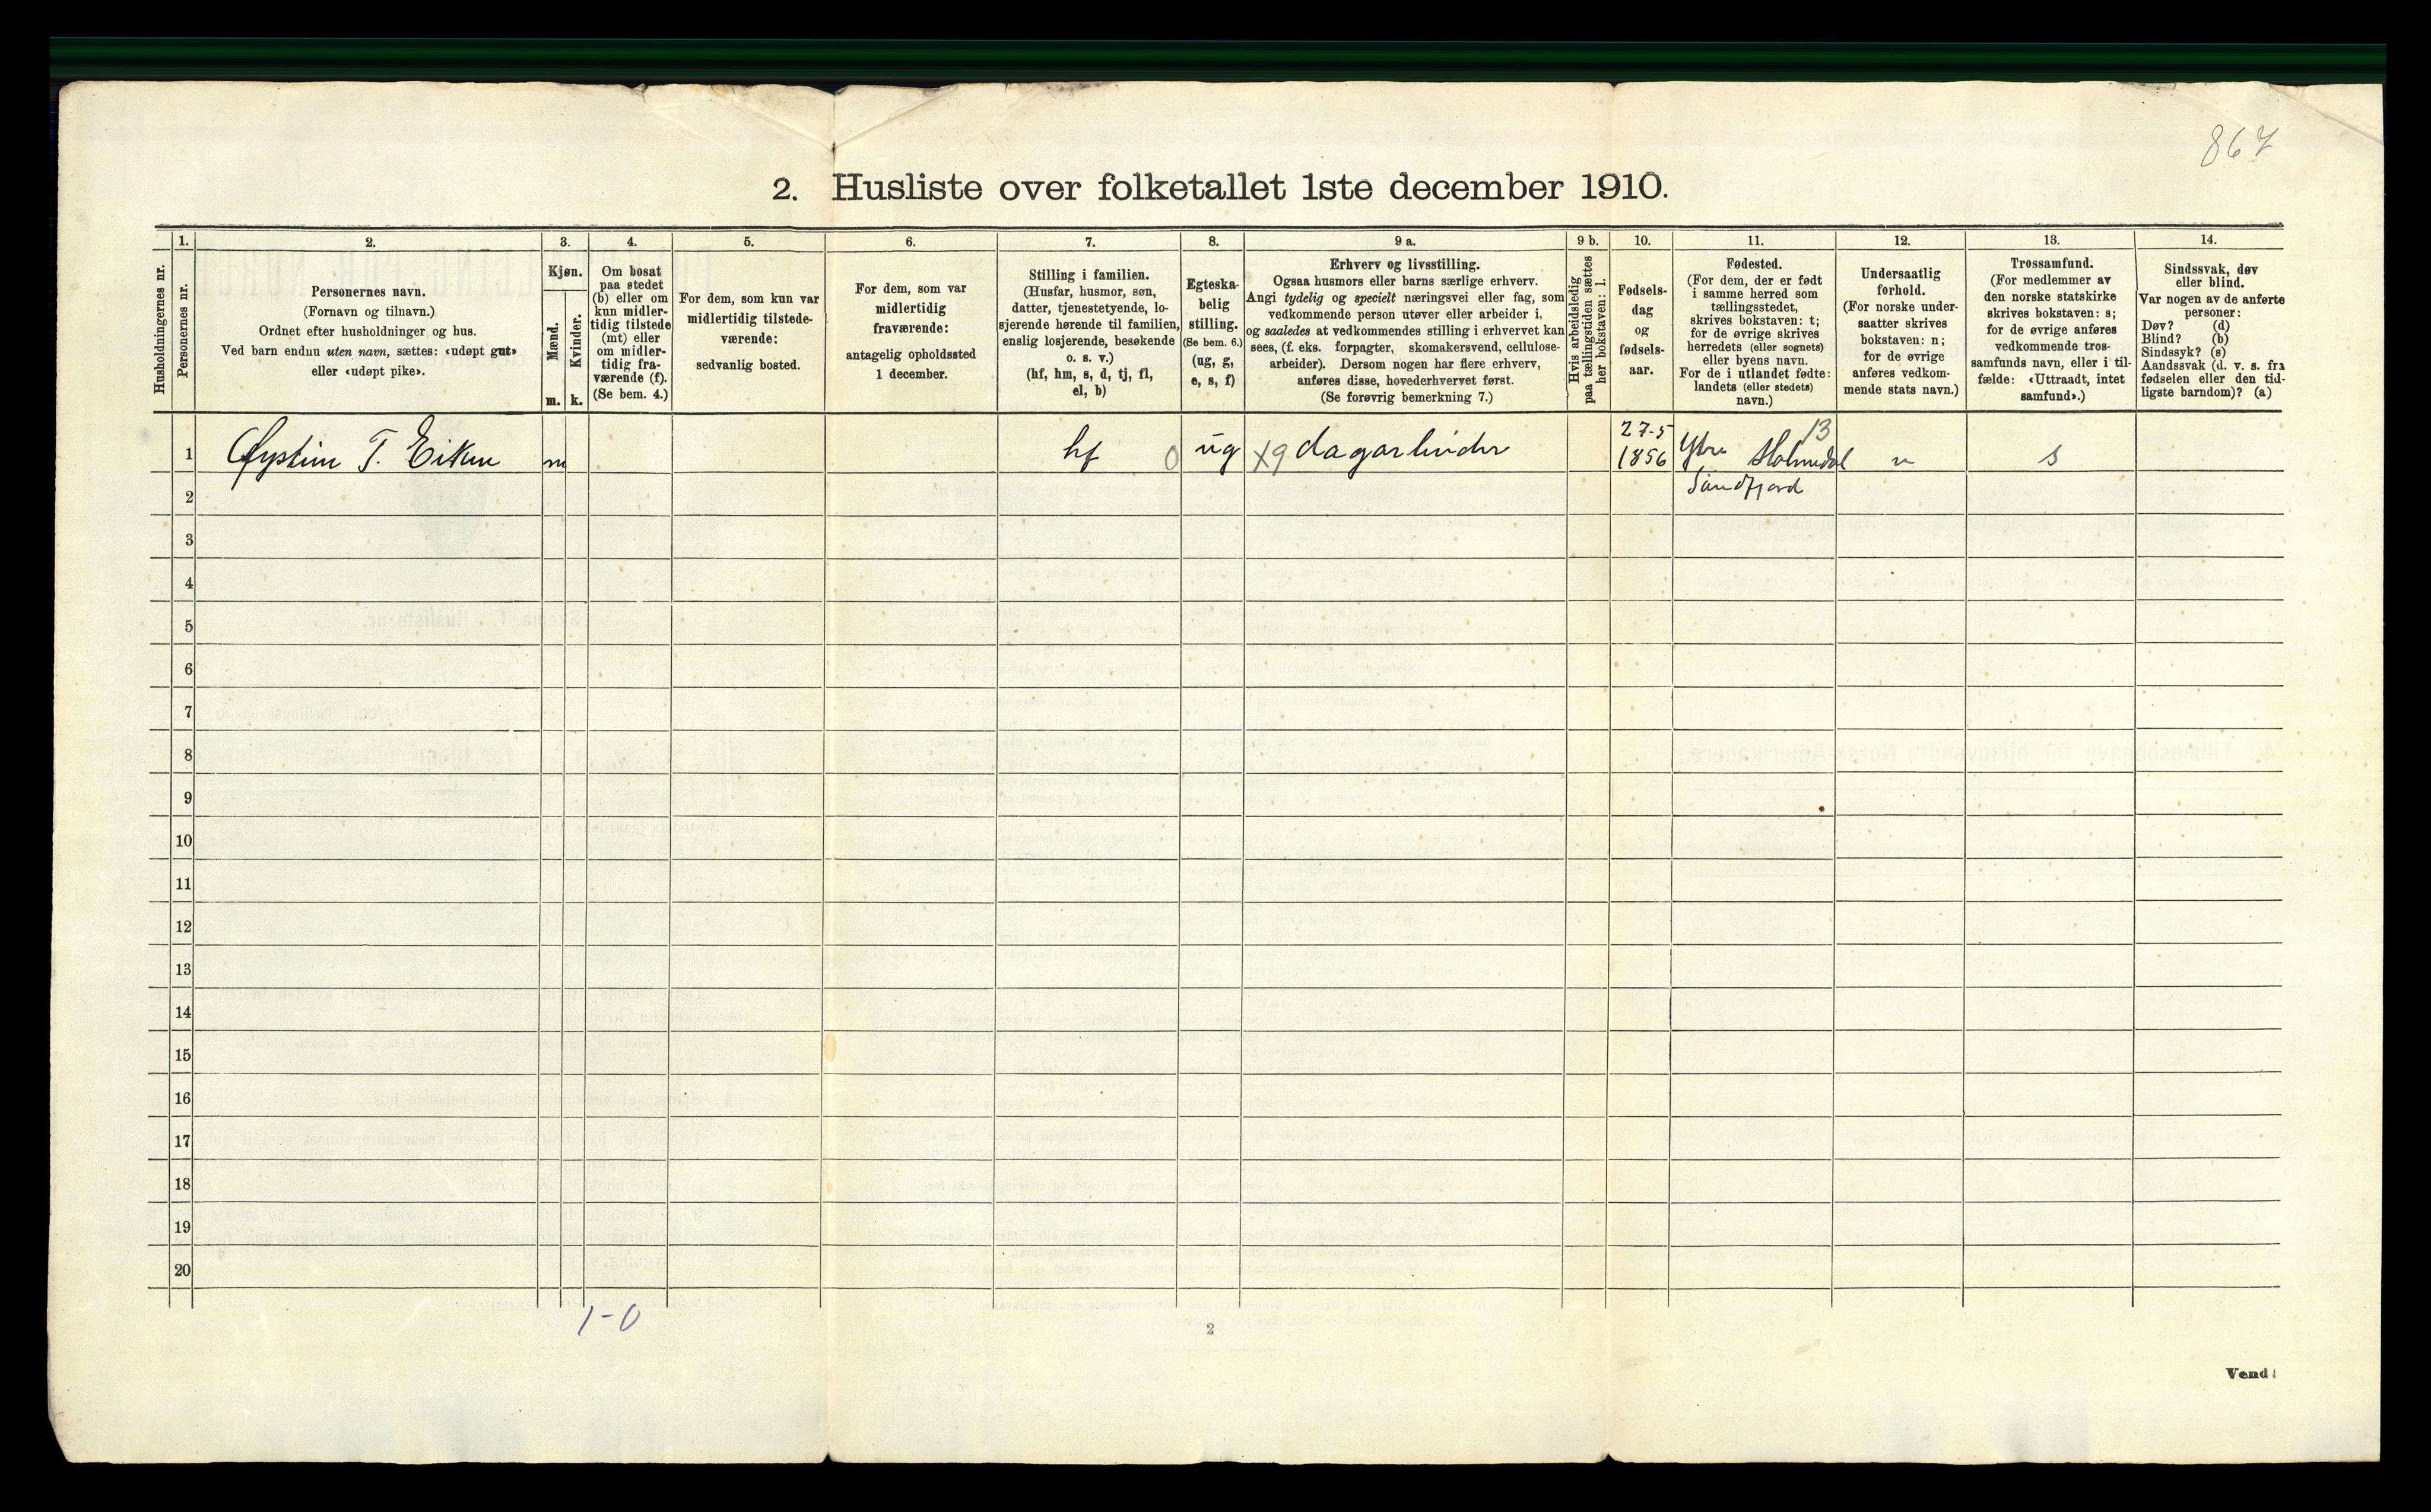 867
2. Husliste over folketallet 1ste december 1910.
Husholdningernes nr.
1.
Personernes nr.
2.
Personernes navn.
(Fornavn og tilnavn.)
Ordnet efter husholdninger og hus.
Ved barn endnu uten navn, sættes: «udøpt gut»
eller «udøpt pike».
3.
Kjøn.
Mænd.
Kvinder.
m.
k.
4.
Om bosat
paa stedet
(b) eller om
kun midler-
tidig tilstede
(mt) eller
om midler-
tidig fra-
værende (f).
(Se bem. 4.)
5.
For dem, som kun var
midlertidig tilstede-
værende:
sedvanlig bosted.
6.
For dem, som var
midlertidig
fraværende:
antagelig opholdssted
1 december.
7.
Stilling i familien.
(Husfar, husmor, søn,
datter, tjenestetyende, lo-
sjerende hørende til familien,
enslig losjerende, besøkende
o. s. v.)
(hf, hm, s, d, tj, fl,
el, b)
8.
Egteska-
belig
stilling.
(Se bem. 6.)
(ug, g,
e, s, f)
9 a.
Erhverv og livsstilling.
Ogsaa husmors eller barns særlige erhverv.
Angi tydelig og specielt næringsvei eller fag, som
vedkommende person utøver eller arbeider i,
og saaledes at vedkommendes stilling i erhvervet kan
sees, (f. eks. forpagter, skomakersvend, cellulose-
arbeider). Dersom nogen har flere erhverv,
anføres disse, hovederhvervet først.
(Se forøvrig bemerkning 7.)
9 b.
Hvis arbeidsledig
paa tællingstiden sættes
her bokstaven: l.
10.
Fødsels-
dag
og
fødsels-
aar.
11.
Fødested.
(For dem, der er født
i samme herred som
tællingsstedet,
skrives bokstaven: t;
for de øvrige skrives
herredets (eller sognets)
eller byens navn.
For de i utlandet fødte:
landets (eller stedets)
navn.)
12.
Undersaatlig
forhold.
(For norske under-
saatter skrives
bokstaven: n;
for de øvrige
anføres vedkom-
mende stats navn.)
13.
Trossamfund.
(For medlemmer av
den norske statskirke
skrives bokstaven: s;
for de øvrige anføres
vedkommende tros-
samfunds navn, eller i til-
fælde: «Uttraadt, intet
samfund».)
14.
Sindssvak, døv
eller blind.
Var nogen av de anførte
personer:
Døv? (d)
Blind? (b)
Sindssyk? (s)
Aandssvak (d. v. s. fra
fødselen eller den tid-
ligste barndom)? (a)
27-5 13
1 Øystein T. Eiken m hf 0 ug X9 dagarbeider 1856 Ytre Holmedal n s
2 Søndfjord
3
4
5
6
7
8
9
10
11
12
13
14
15
16
17
18
19
20
1-0
2
Vend!